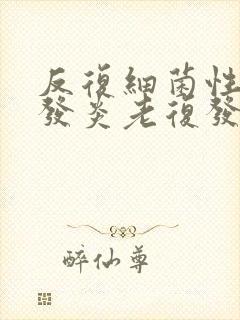 反復細菌性
發炎老復發
醉仙尊